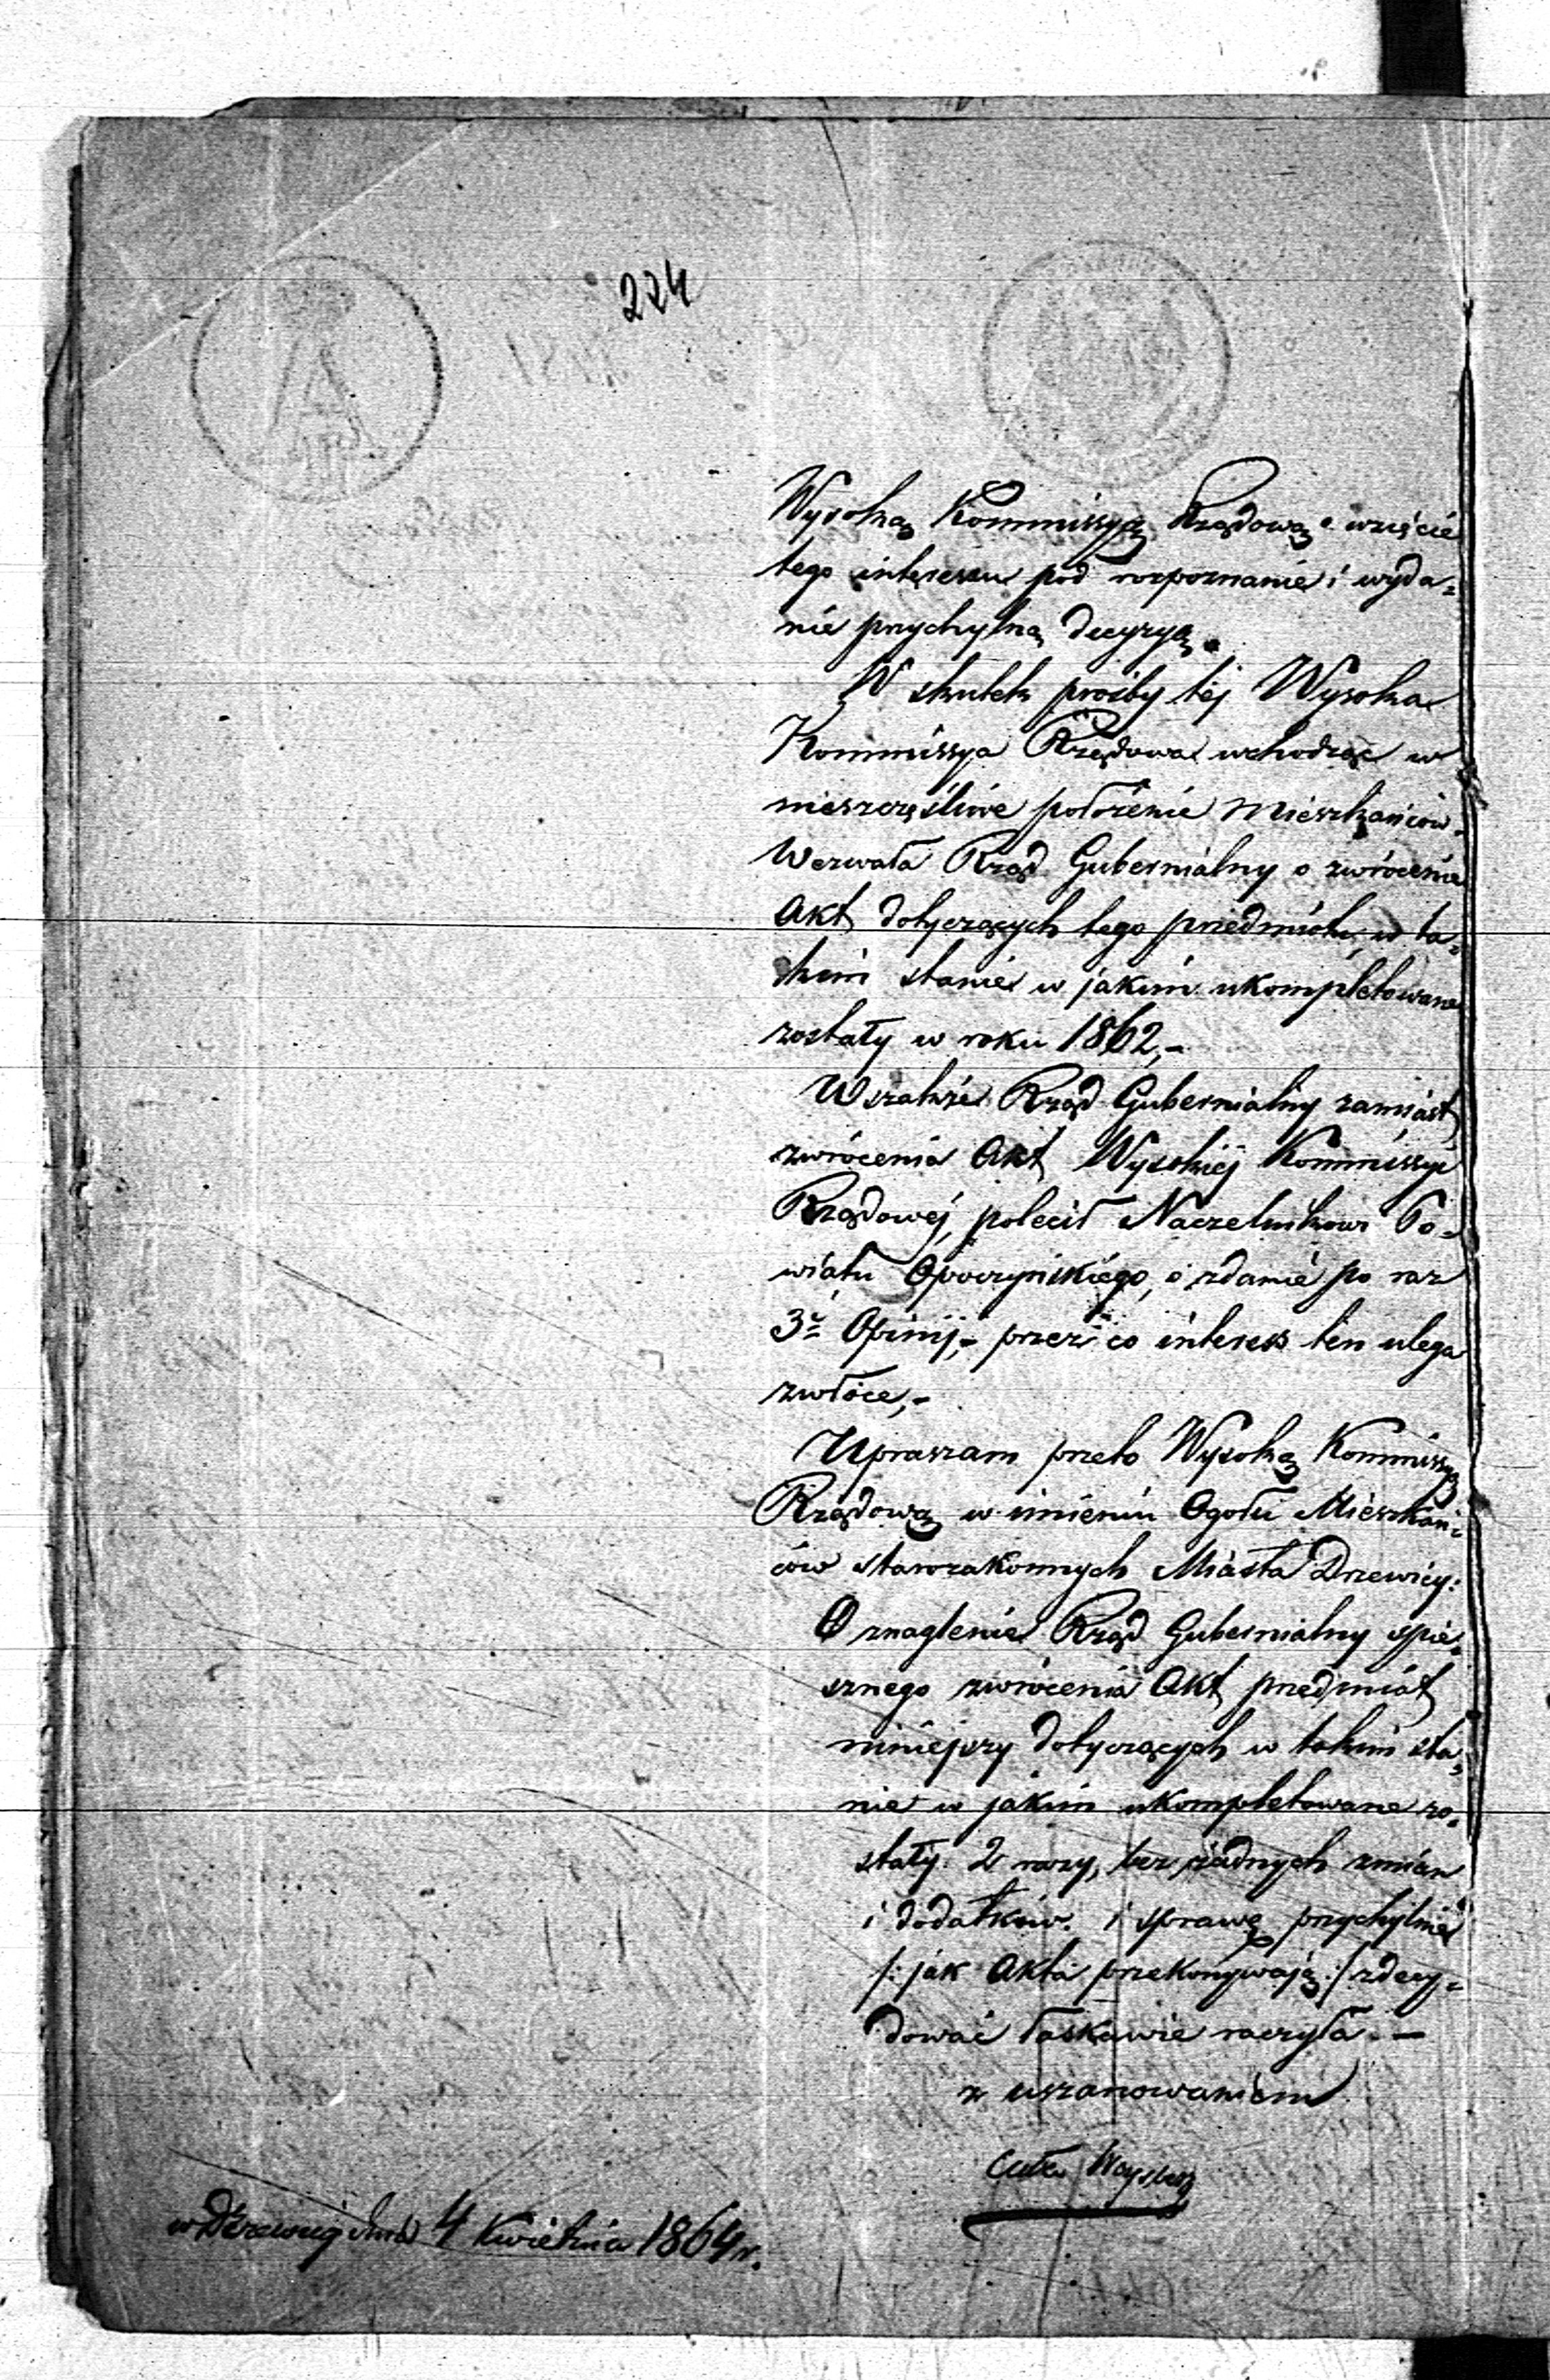 224
Wysoką Kommissyą Rządową o wzięcie
tego interesu pod rozpoznanie i wyda=
nie przychylną decyzyą.
W skutek prośby téj Wysoka
Kommissya Rządowa wchodząc w
nieszczęśliwe położenie Mieszkańców
Wezwała Rząd Gubernialny o zwrócenie
Akt dotyczących tego przedmiotu, w ta=
kim stanie w jakim ukompletowane
zostały w roku 1862,-
Wszakże Rząd Gubernialny zamiast
zwrócenia Akt Wysokiéj Kommissyi
Rządowéj, polecił Naczelnikowi Po=
wiatu Opoczyńskiego, o zdanie po raz
3ci Opinij,- przez co interess ten ulega
zwłoce,-
Upraszam przeto Wysoką Kommissyą
Rządową w imieniu Ogółu Mieszkań=
ców starozakonnych Miasta Drzewicy:
O znaglenie Rząd Gubernialny spie=
sznego zwrócenia Akt przedmiot
niniejszy dotyczących w takim sta=
nie w jakim ukompletowane zo=
stały 2 razy, bez żadnych zmian
i dodatków. i sprawę przychylnie
/: jak Akta przekonywają :/ zdecy=
dować łaskawie raczyła. —
z uszanowaniem
w Drzewicy dnia 4 Kwietnia 1864 r.